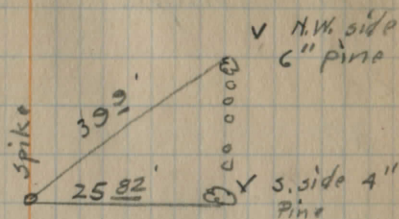 √ N.W. side
6" pine
39 9'
spike
25 82'
√ S. side 4"
Pine